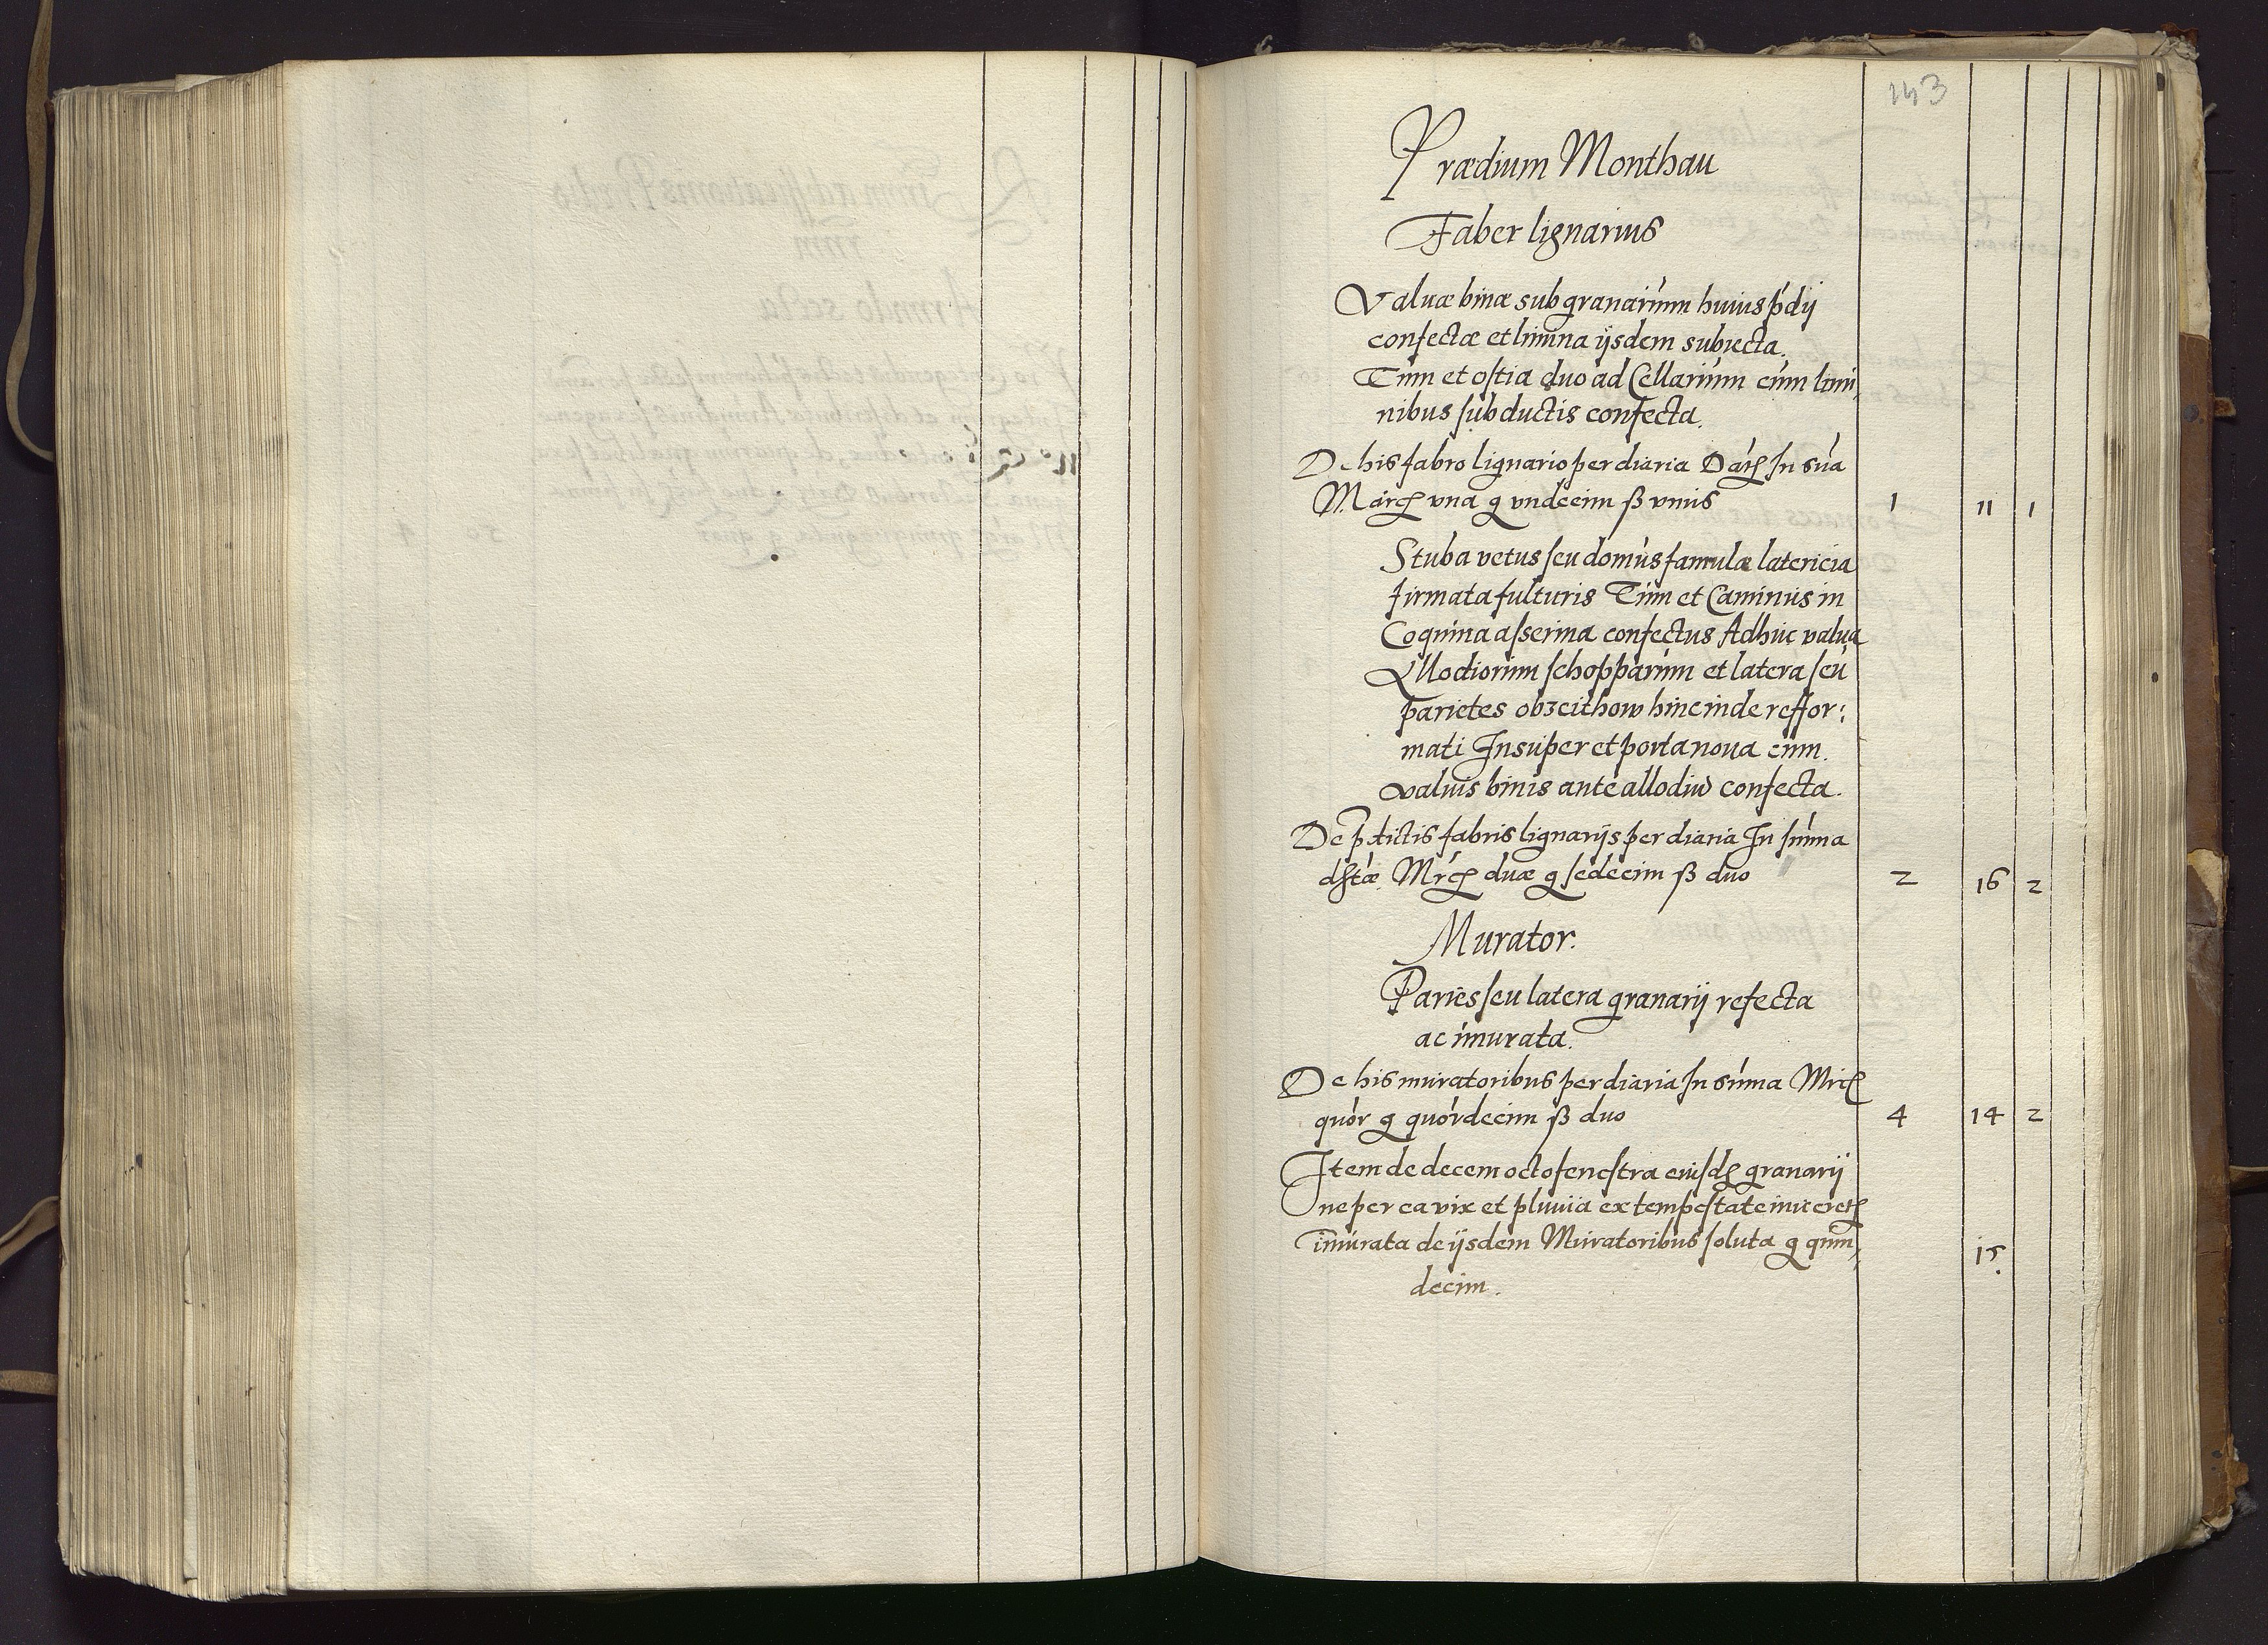 143
Prædium Monthau
Faber lignarius
Valuæ binæ sub granarium huius pdij
confectæ et limina ijsdem subiecta.
Tum et ostia duo ad Cellarium cum limi,
nibus subductis confecta.
De his fabro lignario per diaria In sua
vna g vndecim ß vnus 1 11 1
Stuba vetus seu domus famulæ latericia
firmata fulturis Tum et Caminus in
Coquina asserina confectus Adhuc valua
Allodiorum schopparum et latera seu
parietes obzeithow hincinde reffor:
mati Insuper et porta noua cum
valuis binis ante allodiu confecta.
De pdictis fabris lignarijs per diaria In suma
duæ g sedecim ß duo 2 16 2
Murator.
Paries seu latera granarij refecta
ac imurata.
De his muratoribus per diaria In suma
quor g quordecim ß duo 4 14 2
Item de decem octo fenestra granarij
ne per ea nix et pluuia ex tempestate
imurata de ijsdem Muratoribus soluta g quin,
decim. 15